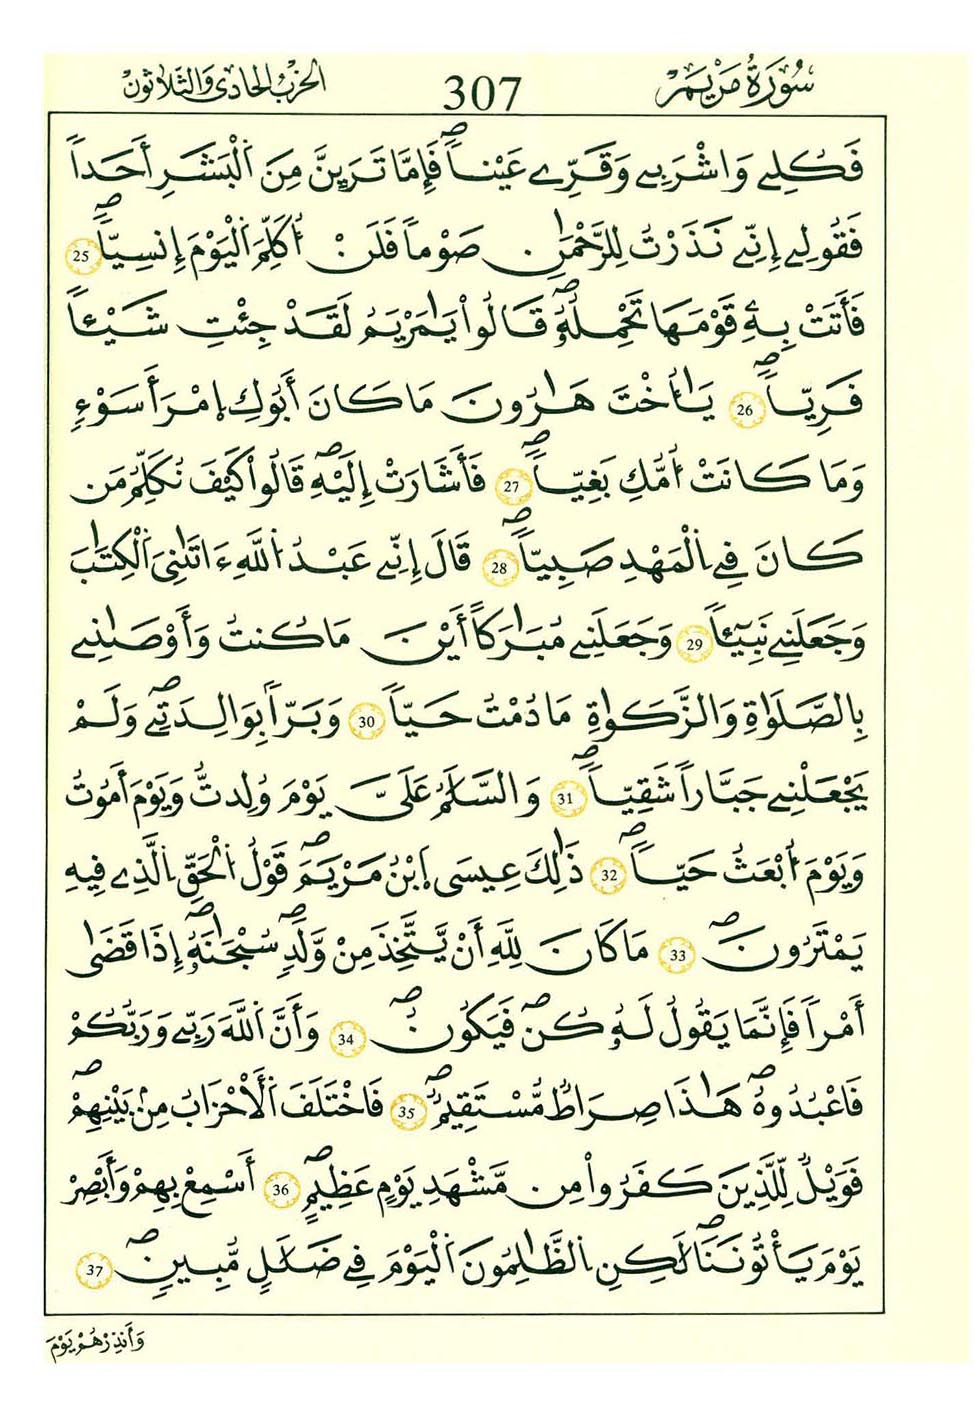 سُورَةُ مَرْيَمَ 307 الحِزْبُ الحَادِي وَالثَّلَاثُونَ
فَكُلِے وَاشْرَبِے وَقَرِّے عَيْناٗۖ فَإِمَّا تَرَيِنَّ مِنَ اَ۬لْبَشَرِ أَحَداٗ
فَقُولِے إِنِّے نَذَرْتُ لِلرَّحْمَٰنِ صَوْماٗ فَلَنْ أُكَلِّمَ اَ۬لْيَوْمَ إِنسِيّاٗۖ 25
فَأَتَتْ بِهِۦ قَوْمَهَا تَحْمِلُهُۥۖ قَالُواْ يَٰمَرْيَمُ لَقَدْ جِئْتِ شَيْـٔاٗ
فَرِيّاٗۖ 26 يَٰأُخْتَ هَٰرُونَ مَا كَانَ أَبُوكِ اِ۪مْرَأَ سَوْءٖ
وَمَا كَانَتْ أُمُّكِ بَغِيّاٗۖ 27 فَأَشَارَتْ إِلَيْهِۖ قَالُواْ كَيْفَ نُكَلِّمُ مَن
كَانَ فِے اِ۬لْمَهْدِ صَبِيّاٗۖ 28 قَالَ إِنِّے عَبْدُ اُ۬للَّهِ ءَاتَىٰنِيَ اَ۬لْكِتَٰبَ
وَجَعَلَنِے نَبِيٓـٔاٗ 29 وَجَعَلَنِے مُبَٰرَكاً أَيْنَ مَا كُنتُ وَأَوْصَٰنِے
بِالصَّلَوٰةِ وَالزَّكَوٰةِ مَا دُمْتُ حَيّاٗ 30 وَبَرّاَۢ بِوَٰلِدَتِےۖ وَلَمْ
يَجْعَلْنِے جَبَّاراٗ شَقِيّاٗۖ 31 وَالسَّلَٰمُ عَلَيَّ يَوْمَ وُلِدتُّ وَيَوْمَ أَمُوتُ
وَيَوْمَ أُبْعَثُ حَيّاٗۖ 32 ذَٰلِكَ عِيسَى اَ۪بْنُ مَرْيَمَۖ قَوْلُ اُ۬لْحَقِّ اِ۬لَّذِے فِيهِ
يَمْتَرُونَۖ 33 مَا كَانَ لِلَّهِ أَنْ يَّتَّخِذَ مِنْ وَّلَدٖۖ سُبْحَٰنَهُۥۖ إِذَا قَضَىٰ
أَمْراٗ فَإِنَّمَا يَقُولُ لَهُۥ كُنۖ فَيَكُونُۖ 34 وَأَنَّ اَ۬للَّهَ رَبِّے وَرَبُّكُمْ
فَاعْبُدُوهُۖ هَٰذَا صِرَاطٞ مُّسْتَقِيمٞۖ 35 فَاخْتَلَفَ اَ۬لْأَحْزَابُ مِنۢ بَيْنِهِمْۖ
فَوَيْلٞ لِّلَّذِينَ كَفَرُواْ مِن مَّشْهَدِ يَوْمٍ عَظِيمٍۖ 36 أَسْمِعْ بِهِمْ وَأَبْصِرْ
يَوْمَ يَأْتُونَنَاۖ لَٰكِنِ اِ۬لظَّٰلِمُونَ اَ۬لْيَوْمَ فِے ضَلَٰلٖ مُّبِينٖۖ 37
وَأَنذِرْهُمْ يَوْمَ